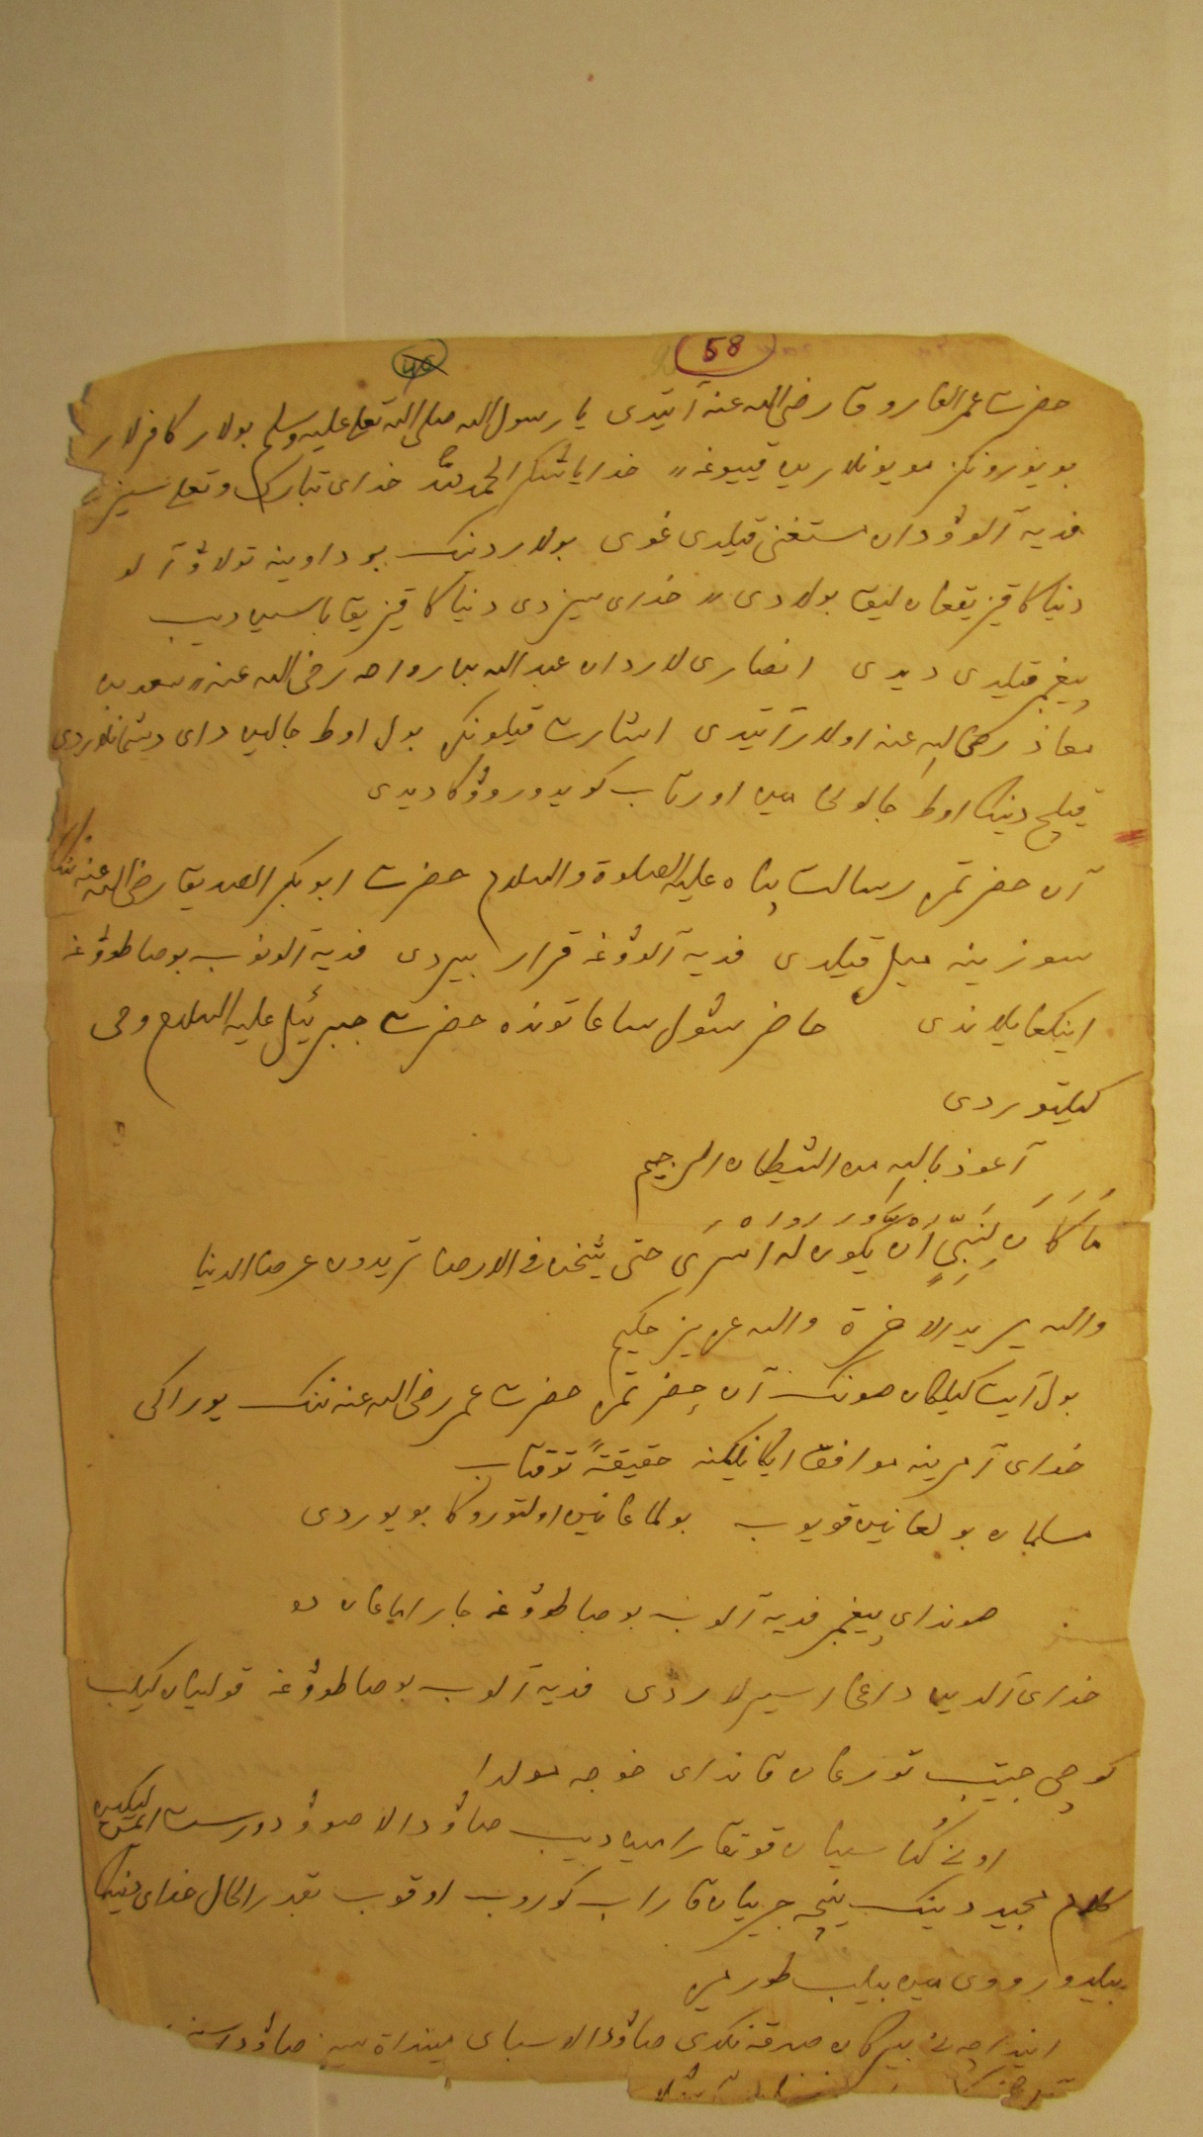 58
حضرت عمر الفاروق رضی الله عنه آیتدی یا رسول الله صلی الله تعلی علیه وسلم بولار کافرلار
بویورونکز مویونلارین قییوغه ,, خدایا شکر الحمد لله خدای تبارک وتعلی سیزنی
فدیه آلوۋدان مستغنی قیلدی غوی بولاردنک بو داوینه تولاۋ آلو
دنیاکا قیزیقعان لیق بولادی ,, خدای سیزدی دنیاکا قیزیقاباسین دیب
پیغمبر قیلدی دیدی انصاری لاردان عبد الله بن رواحه رضی الله عنه ,, سعد بن
معاذ رضی الله عنه اولار آیتدی اشارت قیلونکز بول اوط جالین دای دشمانلاردی
قیلچ دینک اوط جالونی مین اورتاب کویدوروۋکا دیدی
آن حضرتمز رسالت پناه علیه الصلوة والسلام حضرت ابو بکر الصدیق رضی الله عنه ننک
سوزینه میل قیلدی فدیه آلوۋغه قرار بیردی فدیه آلونوب بوصاطوۋغه
اینکغایلاندی حاضر شول ساعاتونده حضرت جبرئیل علیه السلام وحی
کیلتوردی
آعوذ بالله من الشیطان الرجیم
مَا كَانَ لِنَبِيٍّ اَنْ یکون له اسری حتی یثخن فی الارض تریدون عرض الدنیا
والله یرید الاخرة والله عزیز حکیم
بول آیت کیلکان صونک آن حضرتمز حضرت عمر رضی الله عنه ننک یوراکی
خدای آمرینه موافق ایکانلیکنه حقیقةً توقتاب
مسلمان بولغانین قویوب بولماغانین اولتوروکا بویوردی
صوندای پیغمبر فدیه آلوب بوصاطوۋغه جاراماغان
خدای آلدین داغی اسیرلاردی فدیه آلوب بوصاطوۋغه قولینان کیلیب
کوچی جیتیب تورغان قاندای خوجه مولدا
قوتقارامین دیب صاۋدالاصوۋ دورست ایمس لیکن
کلام مجید دینک نیچه جریان قاراب کوروب اوقوب بقدر الحال خدای دنیکا
بیلدوروۋی مین بیلیب طورمز
بیرکان صدقه نکدی صاۋدالاسبای